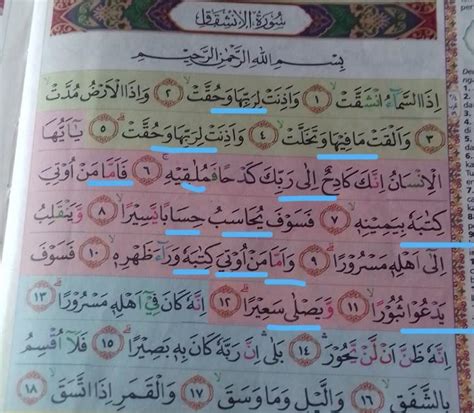 سُوْرَةُ الْاِنْشِقَاقِ
بِسْمِ اللّٰهِ الرَّحْمٰنِ الرَّحِيْمِ
اِذَا السَّمَاۤءُ انْشَقَّتْۙ ١ وَاَذِنَتْ لِرَبِّهَا وَحُقَّتْۙ ٢ وَاِذَا الْاَرْضُ مُدَّتْۙ
٣ وَاَلْقَتْ مَا فِيْهَا وَتَخَلَّتْۙ ٤ وَاَذِنَتْ لِرَبِّهَا وَحُقَّتْۗ ٥ يٰٓاَيُّهَا
الْاِنْسَانُ اِنَّكَ كَادِحٌ اِلٰى رَبِّكَ كَدْحًا فَمُلٰقِيْهِۚ ٦ فَاَمَّا مَنْ اُوْتِيَ
كِتٰبَهٗ بِيَمِيْنِهٖۙ ٧ فَسَوْفَ يُحَاسَبُ حِسَابًا يَّسِيْرًاۙ ٨ وَّيَنْقَلِبُ
اِلٰٓى اَهْلِهٖ مَسْرُوْرًاۗ ٩ وَاَمَّا مَنْ اُوْتِيَ كِتٰبَهٗ وَرَاۤءَ ظَهْرِهٖۙ ١٠ فَسَوْفَ
يَدْعُوْا ثُبُوْرًاۙ ١١ وَّيَصْلٰى سَعِيْرًاۗ ١٢ اِنَّهٗ كَانَ فِيْٓ اَهْلِهٖ مَسْرُوْرًاۗ ١٣
اِنَّهٗ ظَنَّ اَنْ لَّنْ يَّحُوْرَۛ ١٤ بَلٰىۛ اِنَّ رَبَّهٗ كَانَ بِهٖ بَصِيْرًاۗ ١٥ فَلَآ اُقْسِمُ
بِالشَّفَقِۙ ١٦ وَالَّيْلِ وَمَا وَسَقَۙ ١٧ وَالْقَمَرِ اِذَا اتَّسَقَۙ ١٨